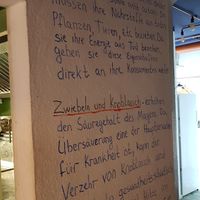 müssen ihre Nährstoffe
Pflanzen, Tieren, etc. beziehen. Da
sie ihre Energie aus Tod beziehen,
gehen sie diese Eigenschaften
direkt an ihre Konsumenten weiter
Zwiebeln und Knoblauch - erhöhen
den Säuregehalt des Magens. Da
Übersäuerung eine der Hauptursachen
für Krankheit ist, kann der
Verzehr von Knoblauch und
gesundheitsschädlich